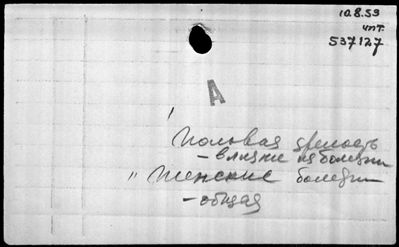 10.8.59
чпт.
537127
А
Половая зрелость
- влияние на болезни
" Женские болезни
- общая